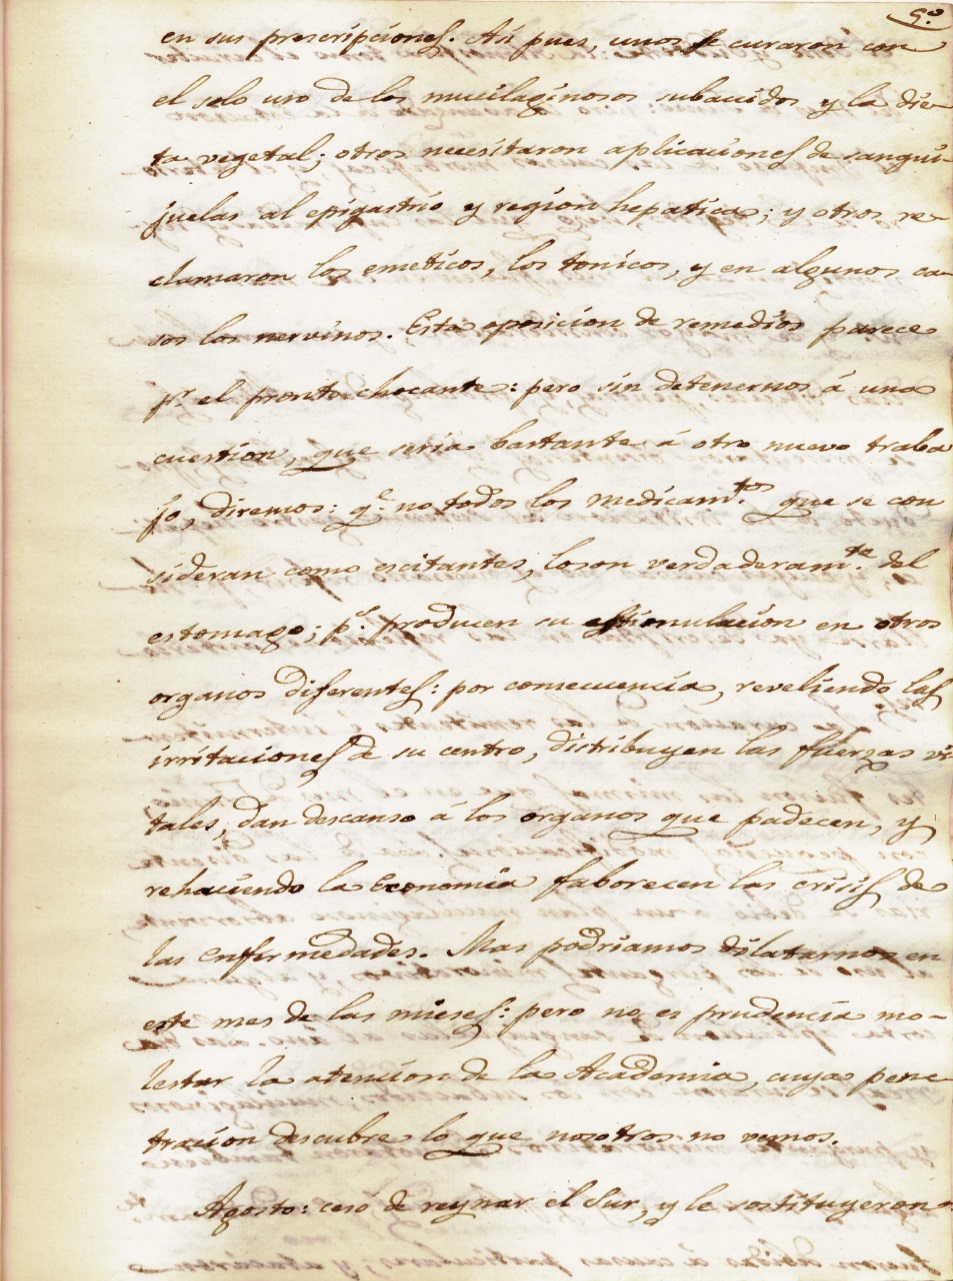 5º
en sus prescripciones. Asi pues, unos se curaron con
el solo uso de los mucilaginosos subacidos y la die-
ta vegetal; otros necesitaron aplicaciones de sangui-
juelas al epigastrio y region hepatica; y otros re-
clamaron los emeticos, los tonicos, y en algunos ca-
sos los nervinos. Esta oposicion de remedios parece
pr. el pronto chocante: pero sin detenernos á una
cuestion, que seria bastante á otro nuevo traba
jo, diremos: qe. no todos los medicamtos. que se con
sideran como escitantes, loson verdaderamte. del
estomago; ps. producen su estimulacion en otros
organos diferentes: por consecuencia, reveliendo las
irritaciones de su centro, distribuyen las fuerzas vi-
tales, dan descanso á los organos que padecen, y
rehaciendo la Economia faborecen las crisis de
las enfermedades. Mas podriamos dilatarnos en
este mes de las mieses: pero no es prudencia mo-
lestar la atencion de la Academia, cuya pene-
tracion descubre lo que nosotros no vemos.
Agosto: ceso de reynar el Sur, y le sostituyeron